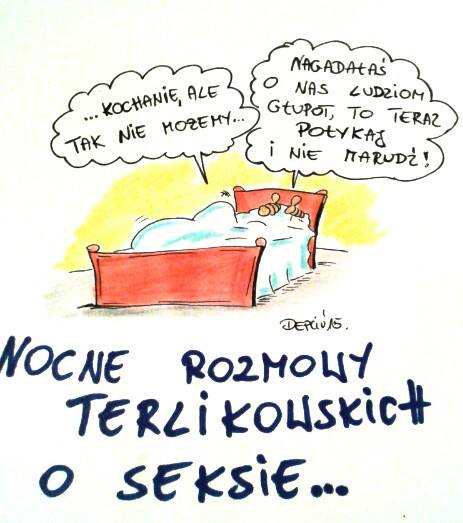 ...KOCHANIE, ALE
TAK NIE MOŻEMY...
NAGADAŁAŚ
O NAS LUDZIOM
GŁUPOT, TO TERAZ
POŁYKAJ
I NIE MARUDŹ!
DEPCIÚ15.
NOCNE ROZMOWY
TERLIKOWSKICH
O SEKSIE...